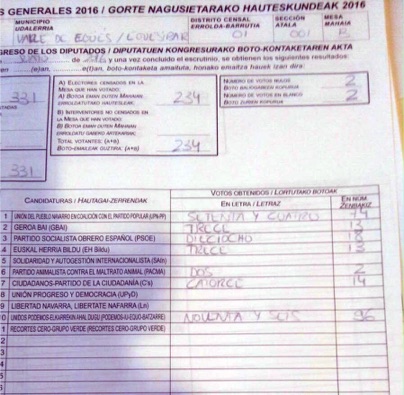 S GENERALES 2016 / GORTE NAGUSIETARAKO HAUTESKUNDEAK 2016
MUNICIPIO
UDALERRIA
VALLE DE EGÜES / EGUESIBAR
DISTRITO CENSAL
ERROLDA-BARRUTIA
01
SECCIÓN
ATALA
001
MESA
MAHAIA
B
GRESO DE LOS DIPUTADOS / DIPUTATUEN KONGRESURAKO BOTO-KONTAKETAREN AKTA
de 2016 y una vez concluido el escrutinio, se obtienen los siguientes resultados:
en (e)an, e(t)an, boto-kontaketa amaituta, honako emaitza hauek izan dira:
331
A) ELECTORES CENSADOS EN LA
MESA QUE HAN VOTADO:
A) BOTOA EMAN DUTEN MAHAIAN
ERROLDATUTAKO HAUTESLEAK:
234
B) INTERVENTORES NO CENSADOS EN
LA MESA QUE HAN VOTADO:
B) BOTOA EMAN DUTEN MAHAIAN
ERROLDATU GABEKO ARTEKARIAK:
TOTAL VOTANTES: (A+B)
BOTO-EMAILEAK GUZTIRA: (A+B)
234
NÚMERO DE VOTOS NULOS
BOTO BALIOGABEEN KOPURUA
2
NÚMERO DE VOTOS EN BLANCO
BOTO ZURIEN KOPURUA
2
331
CANDIDATURAS / HAUTAGAI-ZERRENDAK
VOTOS OBTENIDOS / LORTUTAKO BOTOAK
EN LETRA / LETRAZ
EN NÚM.
ZENBAKIZ
1 UNIÓN DEL PUEBLO NAVARRO EN COALICIÓN CON EL PARTIDO POPULAR (UPN-PP) SETENTA Y CUATRO 74
2 GEROA BAI (GBAI) TRECE 13
3 PARTIDO SOCIALISTA OBRERO ESPAÑOL (PSOE) DIECIOCHO 18
4 EUSKAL HERRIA BILDU (EH Bildu) TRECE 13
5 SOLIDARIDAD Y AUTOGESTIÓN INTERNACIONALISTA (SAIn)
6 PARTIDO ANIMALISTA CONTRA EL MALTRATO ANIMAL (PACMA) DOS 2
7 CIUDADANOS-PARTIDO DE LA CIUDADANÍA (C's) CATORCE 14
8 UNIÓN PROGRESO Y DEMOCRACIA (UPyD)
9 LIBERTAD NAVARRA, LIBERTATE NAFARRA (Ln)
0 UNIDOS PODEMOS-ELKARREKIN AHAL DUGU (PODEMOS-IU-EQUO-BATZARRE) NOVENTA Y SEIS 96
1 RECORTES CERO-GRUPO VERDE (RECORTES CERO-GRUPO VERDE)
2
3
4
5